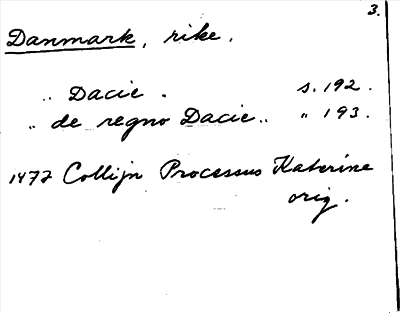 3.
Danmark, rike.
„ Dacie . s. 192 .
„ de regno Dacie „ „ 193 .
1477 Collijn Processus Katerine
orig.